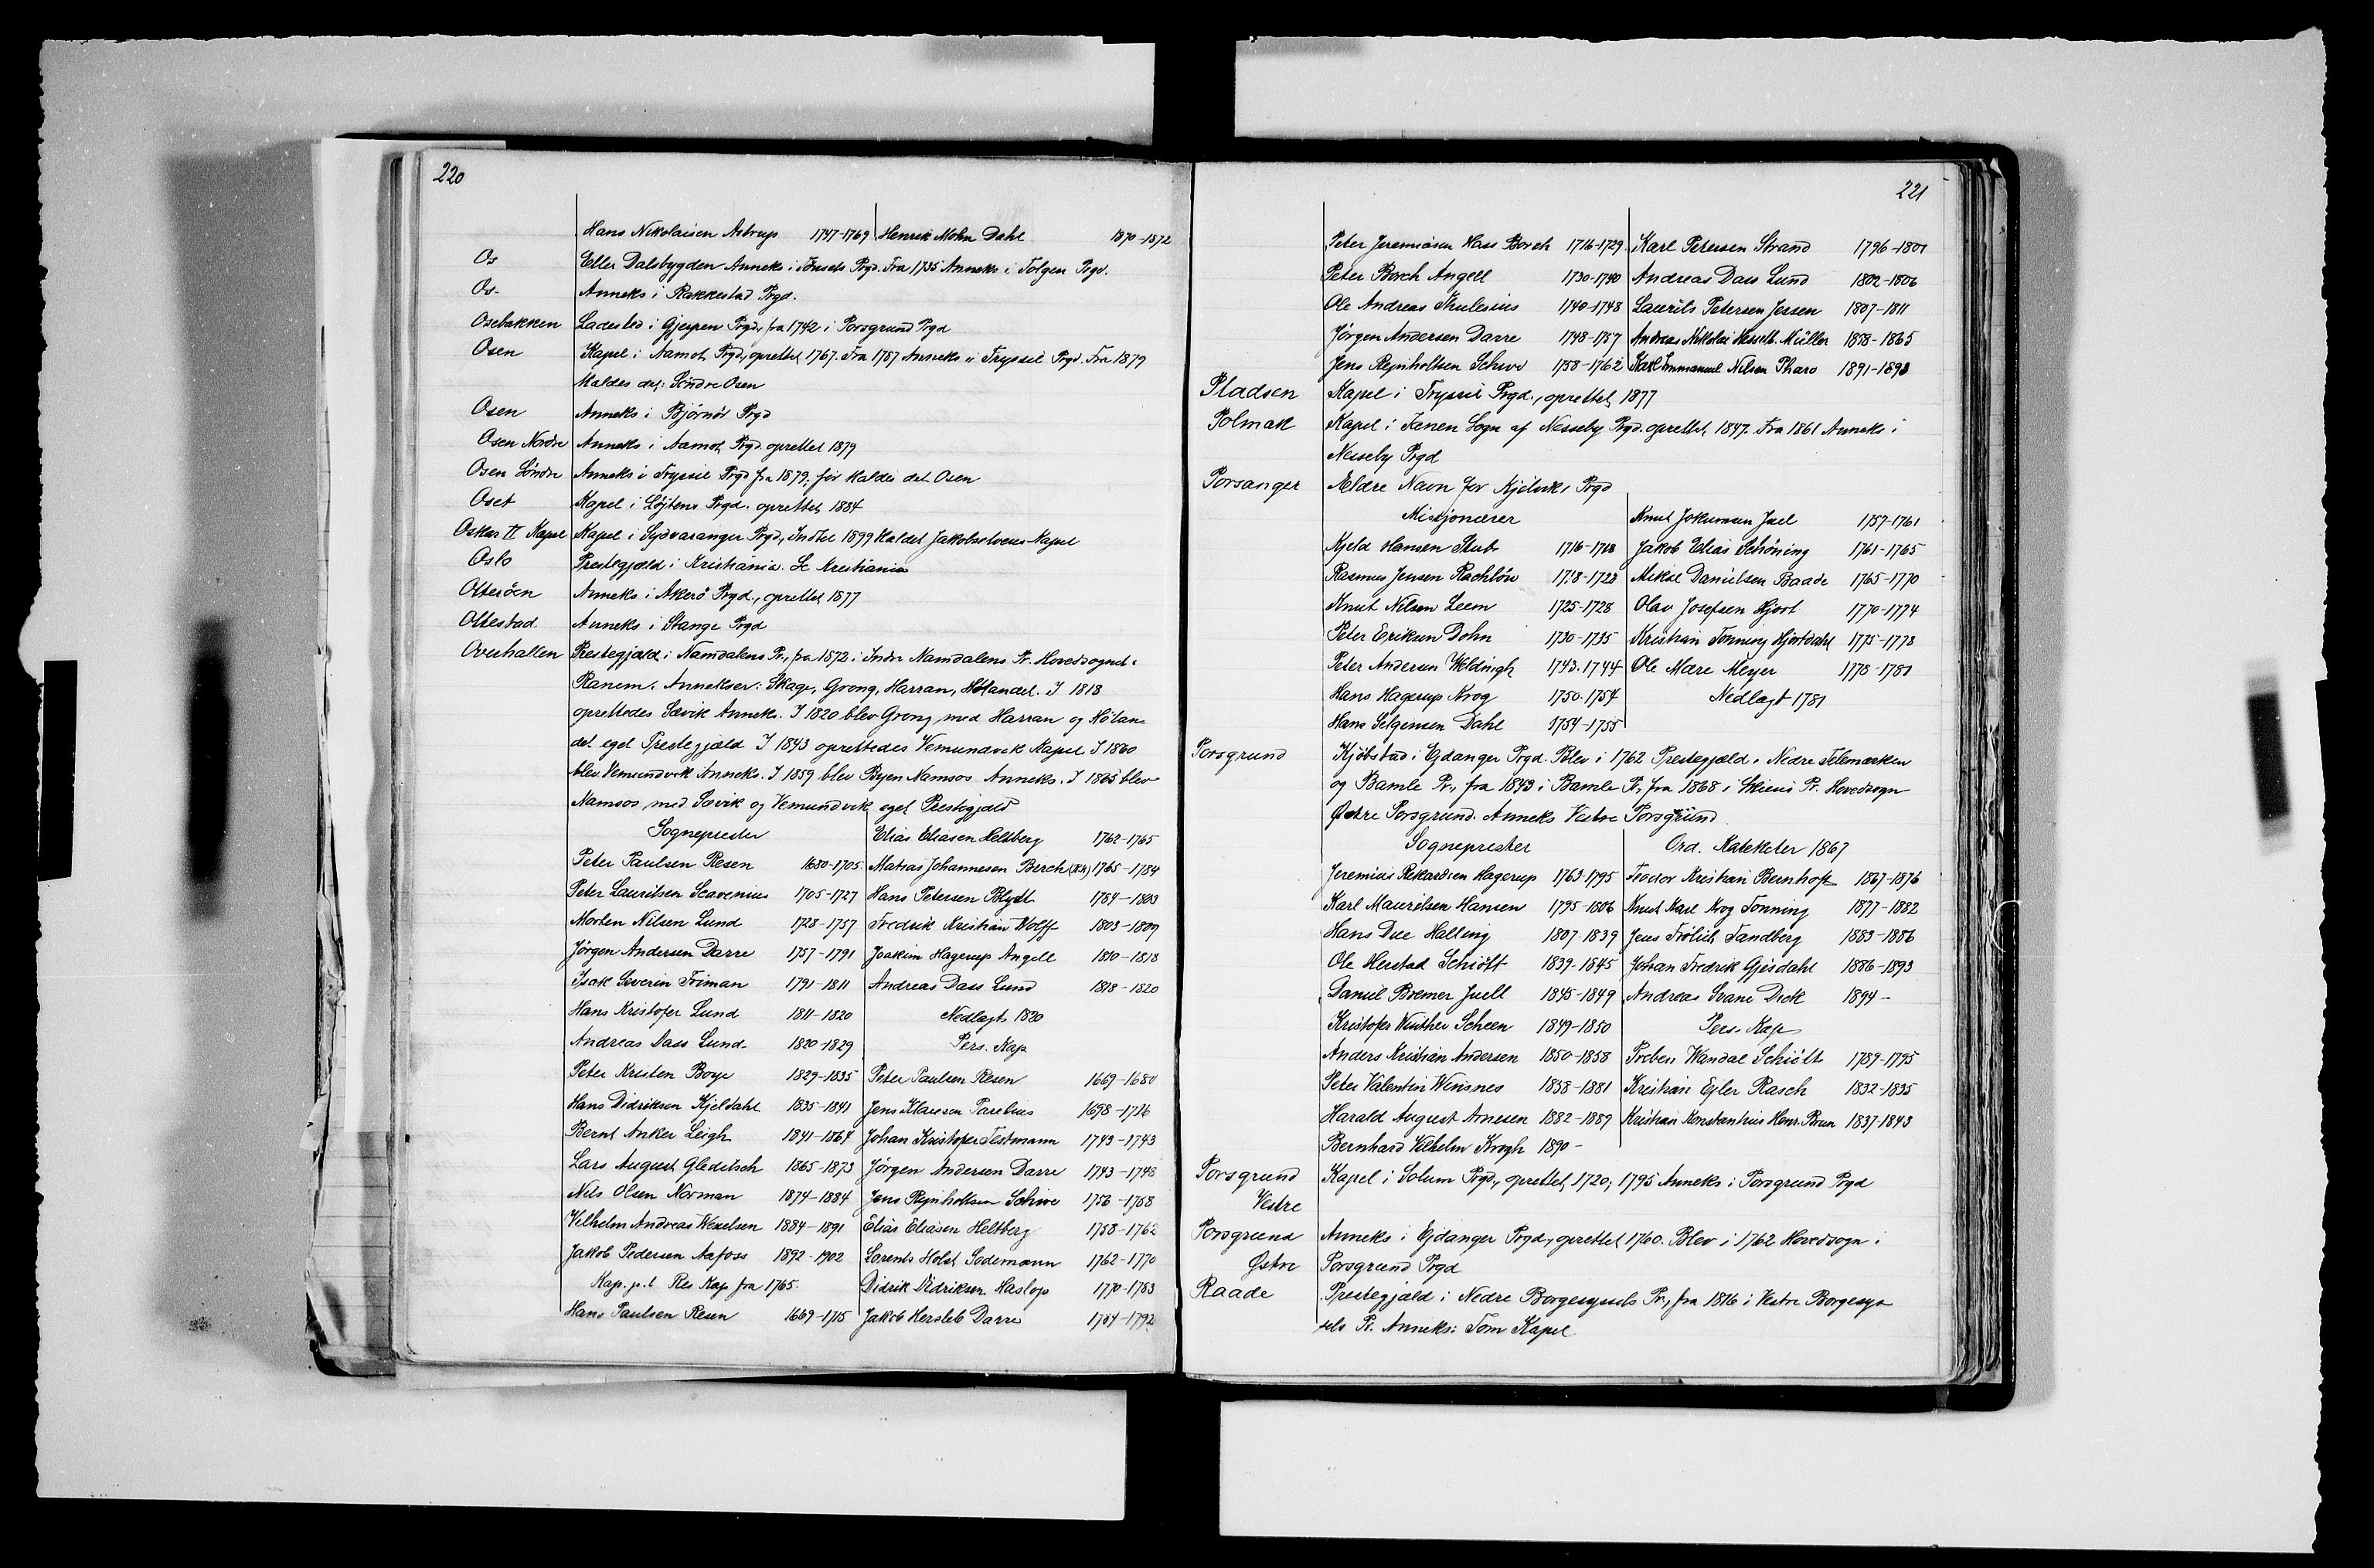 220
Hans Nikolaisen Astrup 1747-1769 Henrik Mohn Dahl 1870-1872
Os Eller Dalsbygden Anneks i Tønsets Prgd. Fra 1735 Anneks i Tolgen Prgd.
Os. Anneks i Rakkestad Prgd.
Osebakken Ladested i Gjerpen Prgd, fra 1742 i Porsgrund Prgd
Osen Kapel i Aamot Prgd, oprettet 1767. Fra 1787 Anneks i Trysil Prgd. Fra 1879
kaldes det: Søndre Osen
Osen Anneks i Bjørnør Prgd
Osen Nordre Anneks i Aamot Prgd oprettet 1879
Osen Søndre Anneks i Trysil Prgd fra 1879, før kaldes det Osen
Oset Kapel i Løjtens Prgd. oprettet 1884
Oskar II Kapel Kapel i Sydvaranger Prgd, Indtil 1899 kaldet Jakobselvens Kapel
Oslo Prestegjæld i Kristiania. Se Kristiania
Otterøen Anneks i Akerø Prgd., oprettet 1877
Ottestad Anneks i Stange Prgd
Overhallen Prestegjæld i Namdalens Pr., fra 1872 i Indre Namdalens Pr. Hovedsognet:
Ranem. Annekser: Skage, Grong, Harran, Hølandet. I 1818
oprettedes Sævik Anneks. I 1820 blev Grong med Harran og Hølan-
det eget Prestegjæld I 1843 oprettedes Vemundvik Kapel I 1860
blev Vemundvik Anneks. I 1859 blev Byen Namsos Anneks. I 1865 blev
Namsos med Sævik og Vemundvik eget Prestegjæld
Sogneprester Elias Eliasen Heltberg 1762-1765
Peter Paulsen Resen 1680-1705. Matias Johannesen Berch 1765-1784
Peter Lauritsen Scavenius 1705-1727 Hans Petersen Blydt 1784-1803
Morten Nilsen Lund 1728-1757 Fredrik Kristian Wolff 1803-1809
Jørgen Andersen Darre 1757-1791 Joakim Hagerup Angell 1810-1818
Isak Severin Friman 1791-1811 Andreas Dass Lund 1818-1820
Hans Kristofer Lund 1811-1820 Nedlagt 1820
Andreas Dass Lund 1820-1829 Pers. Kap
Peter Kristen Boye 1829-1835 Peter Paulsen Resen 1669-1680
Hans Didriksen Kjeldahl 1835-1841 Jens Klausen Parelius 1698-1716
Bernt Anker Leigh 1841-1864 Johan Kristofer Testmann 1743-1743
Lars August Gleditsch 1865-1873 Jørgen Andersen Darre 1743-1748
Nils Olsen Norman 1874-1884 Jens Rejnholtsen Schive 1756-1758
Vilhelm Andreas Wexelsen 1884-1891 Elias Eliasen Heltberg 1758-1762
Jakob Pedersen Aafoss 1892-1902 Lorents Holst Sodemann 1762-1770
Kap. p. l Res Kap fra 1765. Didrik Didriksen Haslop 1770-1783
Hans Paulsen Resen 1669-1715 Jakob Hersleb Darre 1784-1792
221
Peter Jeremiasen Hass Borch 1716-1729. Karl Petersen Strand 1796-1801
Peter Borch Angell 1730-1740 Andreas Dass Lund 1802-1806
Ole Andreas Thulesius 1740-1748 Laurits Petersen Jessen 1807-1811
Jørgen Andersen Darre 1748-1757 Andreas Nikolai Hesselb. Müller 1858-1865
Jens Rejnholtsen Schive 1758-1762 Karl Emmanuel Nilsen Tharo 1891-1893
Pladsen Kapel i Trysil Prgd., oprettet 1877
Polmak Kapel i Tanen Sogn af Nesseby Prgd. oprettet 1847. Fra 1861 Anneks i
Nesseby Prgd
Porsanger Ældre Navn for Kjelvik Prgd
Misjonærer Knut Jokumsen Juel 1757-1761
Kjeld Hansen Stub 1716-1718 Jakob Elias Schøning 1761-1765
Rasmus Jensen Rachløw 1718-1723 Mikael Danielsen Baade 1765-1770
Knut Nilsen Leem 1725-1728 Olav Josefsen Hjort 1770-1774
Peter Eriksen Dohn 1730-1735 Kristian Tønning Hjortdahl 1775-1778
Peter Andersen Weldingh 1743-1744 Ole Mære Meyer 1778-1781
Hans Hagerup Krog 1750-1754 Nedlagt 1781
Hans Selgensen Dahl 1754-1755
Porsgrund Kjøbstad i Ejdanger Prgd. Blev i 1762 Prestegjæld i Nedre Telemarken
og Bamle Pr., fra 1843 i Bamle Pr, fra 1868 i Skiens Pr. Hovedsogn
Østre Porsgrund. Anneks Vestre Porsgrund.
Sogneprester Ord. Kateketer 1867
Jeremias Rikardsen Hagerup 1763-1795 Teodor Kristian Bernhoft 1867-1876
Karl Mauritsen Hansen 1795-1806 Knut Karl Krog Tønning 1877-1882
Hans Due Halling 1807-1839 Jens Frølich Tandberg 1883-1886
Ole Herstad Schiøtt 1839-1845 Johan Fredrik Gjesdahl 1886-1893
Daniel Bremer Juell 1845-1849 Andreas Grane Dick 1894-
Kristofer Winther Scheen 1849-1850 Pers. Kap
Anders Kristian Andersen 1850-1858 Preben Wandal Schiøtt 1789-1795
Peter Valentin Winsnes 1858-1881 Kristian Ejler Rasch 1832-1835
Harald August Arnesen 1882-1889 Kristian Konstantius Henr. Brun 1837-1843
Bernhard Vilhelm Krogh 1890-
Porsgrund Kapel i Solum Prgd, oprettet 1720, 1795 Anneks i Porsgrund Prgd
Vestre
Porsgrund Anneks i Ejdanger Prgd, oprettet 1760. Blev i 1762 Hovedsogn i
Østre Porsgrund Prgd
Raade Prestegjæld i Nedre Borgesyssels Pr., fra 1816 i Vestre Borgesys
sels Pr. Anneks: Tom Kapel